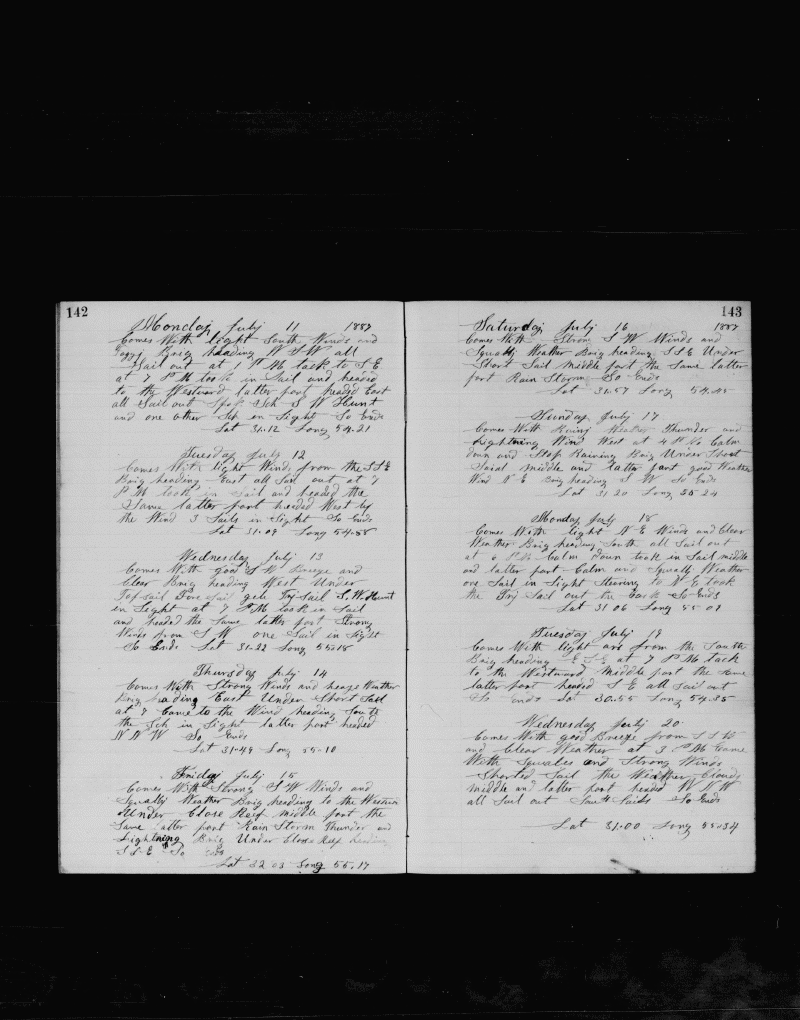 142
Monday July 11 1887
Comes With light South Winds and
Foggy Brig heading W S W all
Sail out at 1 P M tack to S E
at 7 P M took in Sail and headed
to the Westward latter part headed East
all Sail out Spok Sch S W Hunt
and one other Sch in Sight So Ends
Lat 31.12 Long 54.21
Tuesday July 12
Comes With light Winds from the S S E
Brig heading East all Sail out at 7
P M took in Sail and headed the
Same latter part headed West by
the Wind 3 Sails in Sight So Ends
Lat 31.09 Long 54.58
Wednesday July 13
Comes With good S W Breeze and
Clear Brig heading West Under
Topsail Fore Sail Trysail S. W. Hunt
in Sight at 7 P M took in Sail
and headed the Same latter part Strong
Winds from S W one Sail in Sight
So Ends Lat 31.22 Long 55.18
Thursday July 14
Comes With Strong Winds and heavy Weather
Brig heading East Under Short Sail
at 7 Came to the Wind heading South
the Sch in Sight latter part headed
W N W So Ends
Lat 31.49 Long 55.10
Friday July 15
Comes With Strong S W Winds and
Squally Weather Brig heading to the Western
Under Close Reef middle part the
Same latter part Rain Storm Thunder and
Lightning Brig Under Close Reef heading
S S E So Ends
Lat 32 03 Long 55.17
143
Saturday July 16 1887
Comes With Strong S W Winds and
Squally Weather Brig heading S S E Under
Short Sail middle part the Same latter
part Rain Storm So Ends
Lat 31.57 Long 54.45
Sunday July 17
Comes With Rainy Weather Thunder and
Lightning Wind West at 4 P M Calm
down and Stop Raining Brig Under Short
Saial middle and latter part good Weather
Wind N E Brig heading S W So Ends
Lat 31 20 Long 55 24
Monday July 18
Comes With light N E Winds and Clear
Weather Brig heading South all Sail out
at 6 P M Calm down took in Sail middle
and latter part Calm and Squally Weather
one Sail in Sight Stearing to N E took
the Try Sail out the So Ends
Lat 31 06 Long 55 07
Tuesday July 19
Comes With light airs from the South
Brig heading E S E at 7 P M tack
to the Westward middle part the Same
latter part headed S E all Sail out
So ends Lat 30.55 Long 54.35
Wednesday July 20
Comes With good Breeze from S S W
and Clear Weather at 3 P M Came
With Squales and Strong Winds
Shorted Sail the Weather Cloudy
middle and latter part headed W N W
all Sail out So Ends
Lat 31.00 Long 55.34